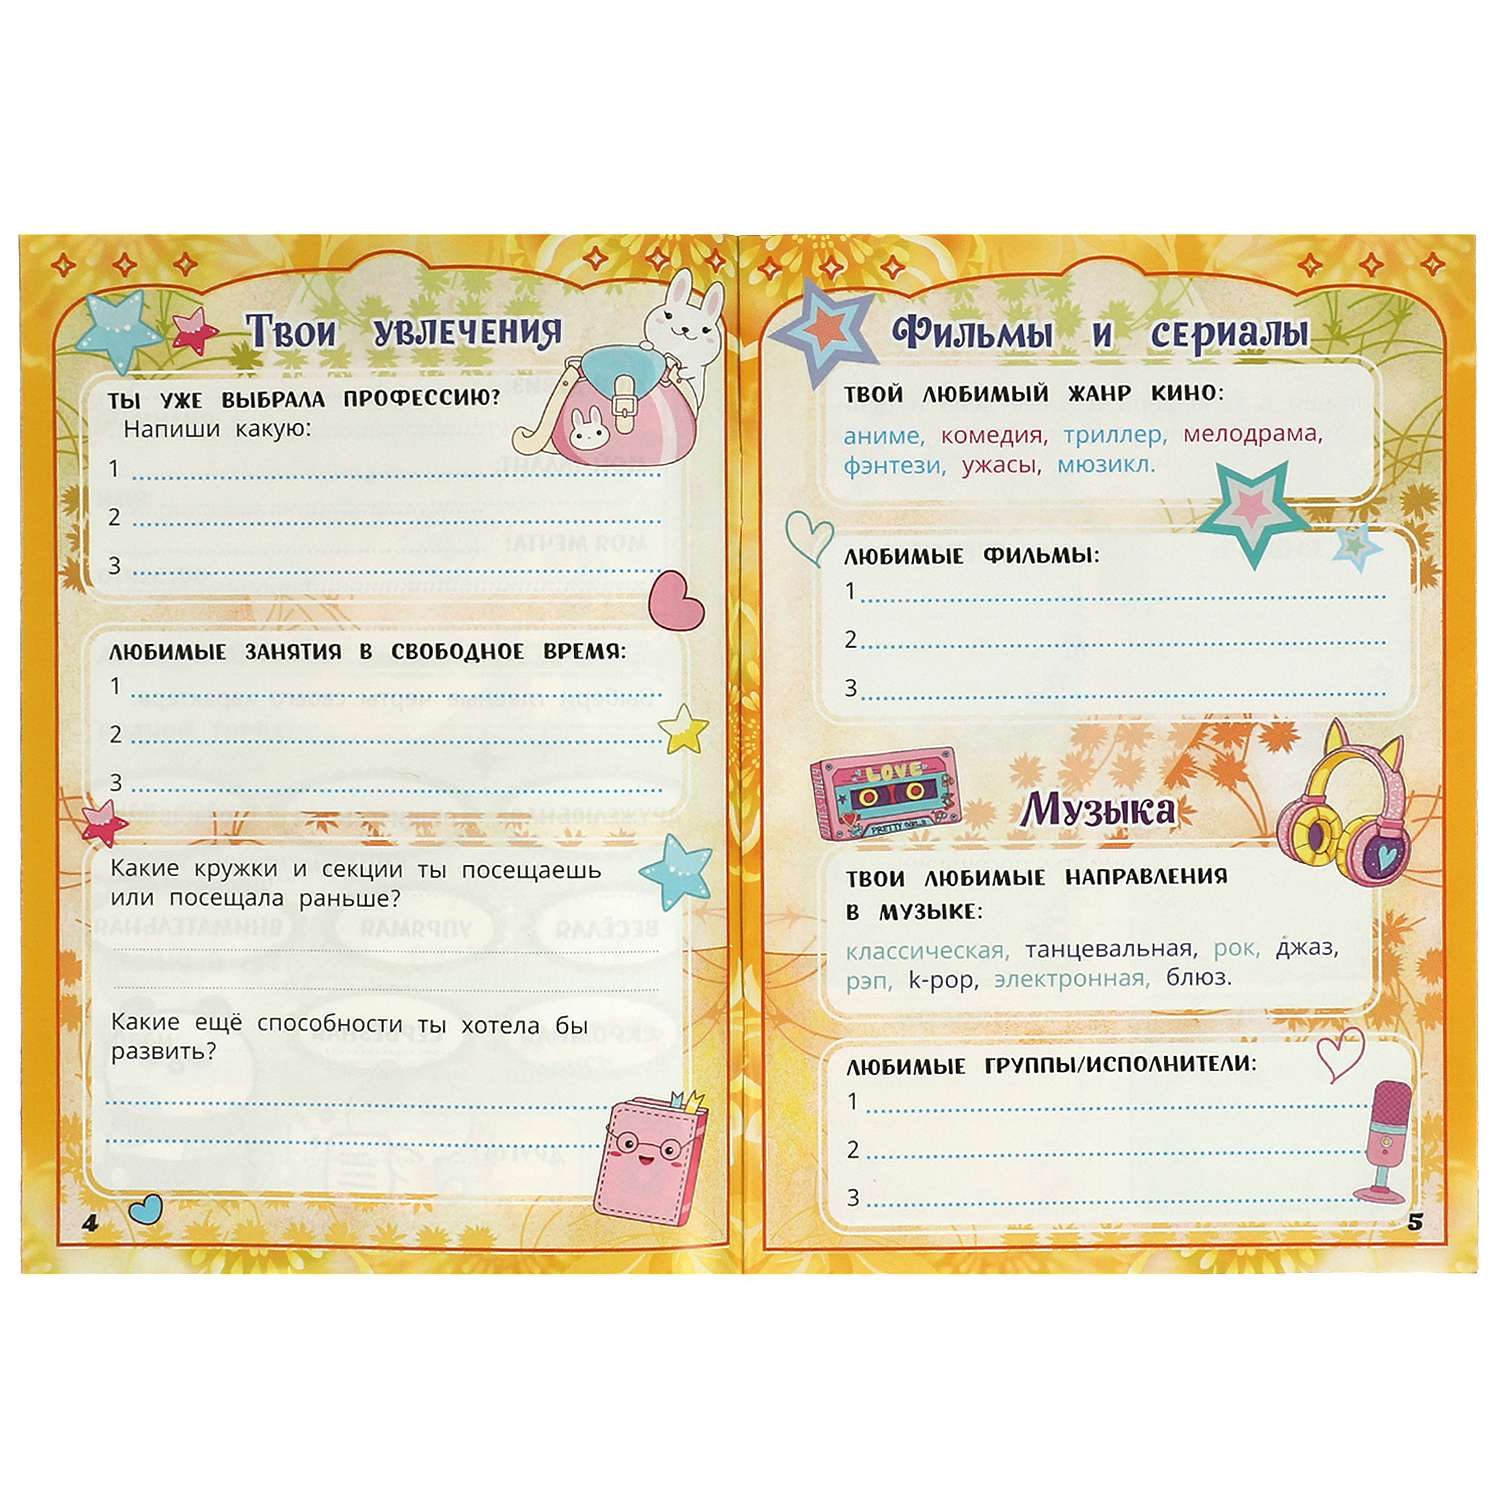 Твои увлечения
ТЫ УЖЕ ВЫБРАЛА ПРОФЕССИЮ?
Напиши какую:
1
2
3
ЛЮБИМЫЕ ЗАНЯТИЯ В СВОБОДНОЕ ВРЕМЯ:
1
2
3
Какие кружки и секции ты посещаешь
или посещала раньше?
Какие ещё способности ты хотела бы
развить?
4
Фильмы и сериалы
ТВОЙ ЛЮБИМЫЙ ЖАНР КИНО:
аниме, комедия, триллер, мелодрама,
фэнтези, ужасы, мюзикл.
ЛЮБИМЫЕ ФИЛЬМЫ:
1
2
3
LOVE
PRETTY
Музыка
ТВОИ ЛЮБИМЫЕ НАПРАВЛЕНИЯ
В МУЗЫКЕ:
классическая, танцевальная, рок, джаз,
рэп, k-pop, электронная, блюз.
ЛЮБИМЫЕ ГРУППЫ/ИСПОЛНИТЕЛИ:
1
2
3
5